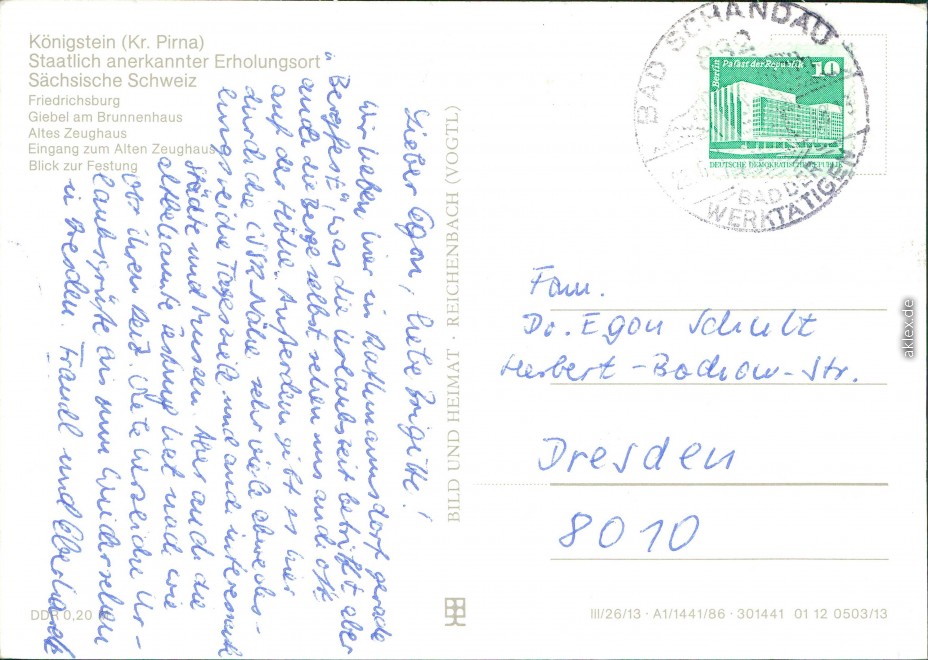 Königstein (Kr. Pirna)
Staatlich anerkannter Erholungsort
Sächsische Schweiz
Friedrichsburg
Giebel am Brunnenhaus
Altes Zeughaus
Eingang zum Alten Zeughaus
Blick zur Festung
Lieber Egon, liebe Brigitte!
Wir haben hier in Rathmannsdorf gerade
„Bergfest“, was die Urlaubszeit betrifft, aber
auch die Berge selbst sehen uns auch oft
auf der Höhe. Außerdem gibt es hier
durch die ČSR-Nähe sehr viele abwechs-
lungsreiche Tagesziele und auch interessante
Städte und Museen. Aber auch die
altbekannte Festung hat nach wie
vor ihren Reiz. Viele herzliche Ur-
laubsgrüße bis zum Wiedersehen
in Dresden. Traudl und Eberhard
DDR 0,20
BILD UND HEIMAT · REICHENBACH (VOGTL)
BAD SCHANDAU
832
BAD DER
WERKTÄTIGEN
Berlin Palast der Republik 10
DEUTSCHE DEMOKRATISCHE REPUBLIK
Fam.
Dr. Egon Schult
Herbert-Bochow-Str.
Dresden
8010
III/26/13 · A1/1441/86 · 301441 01 12 0503/13
aklex.de